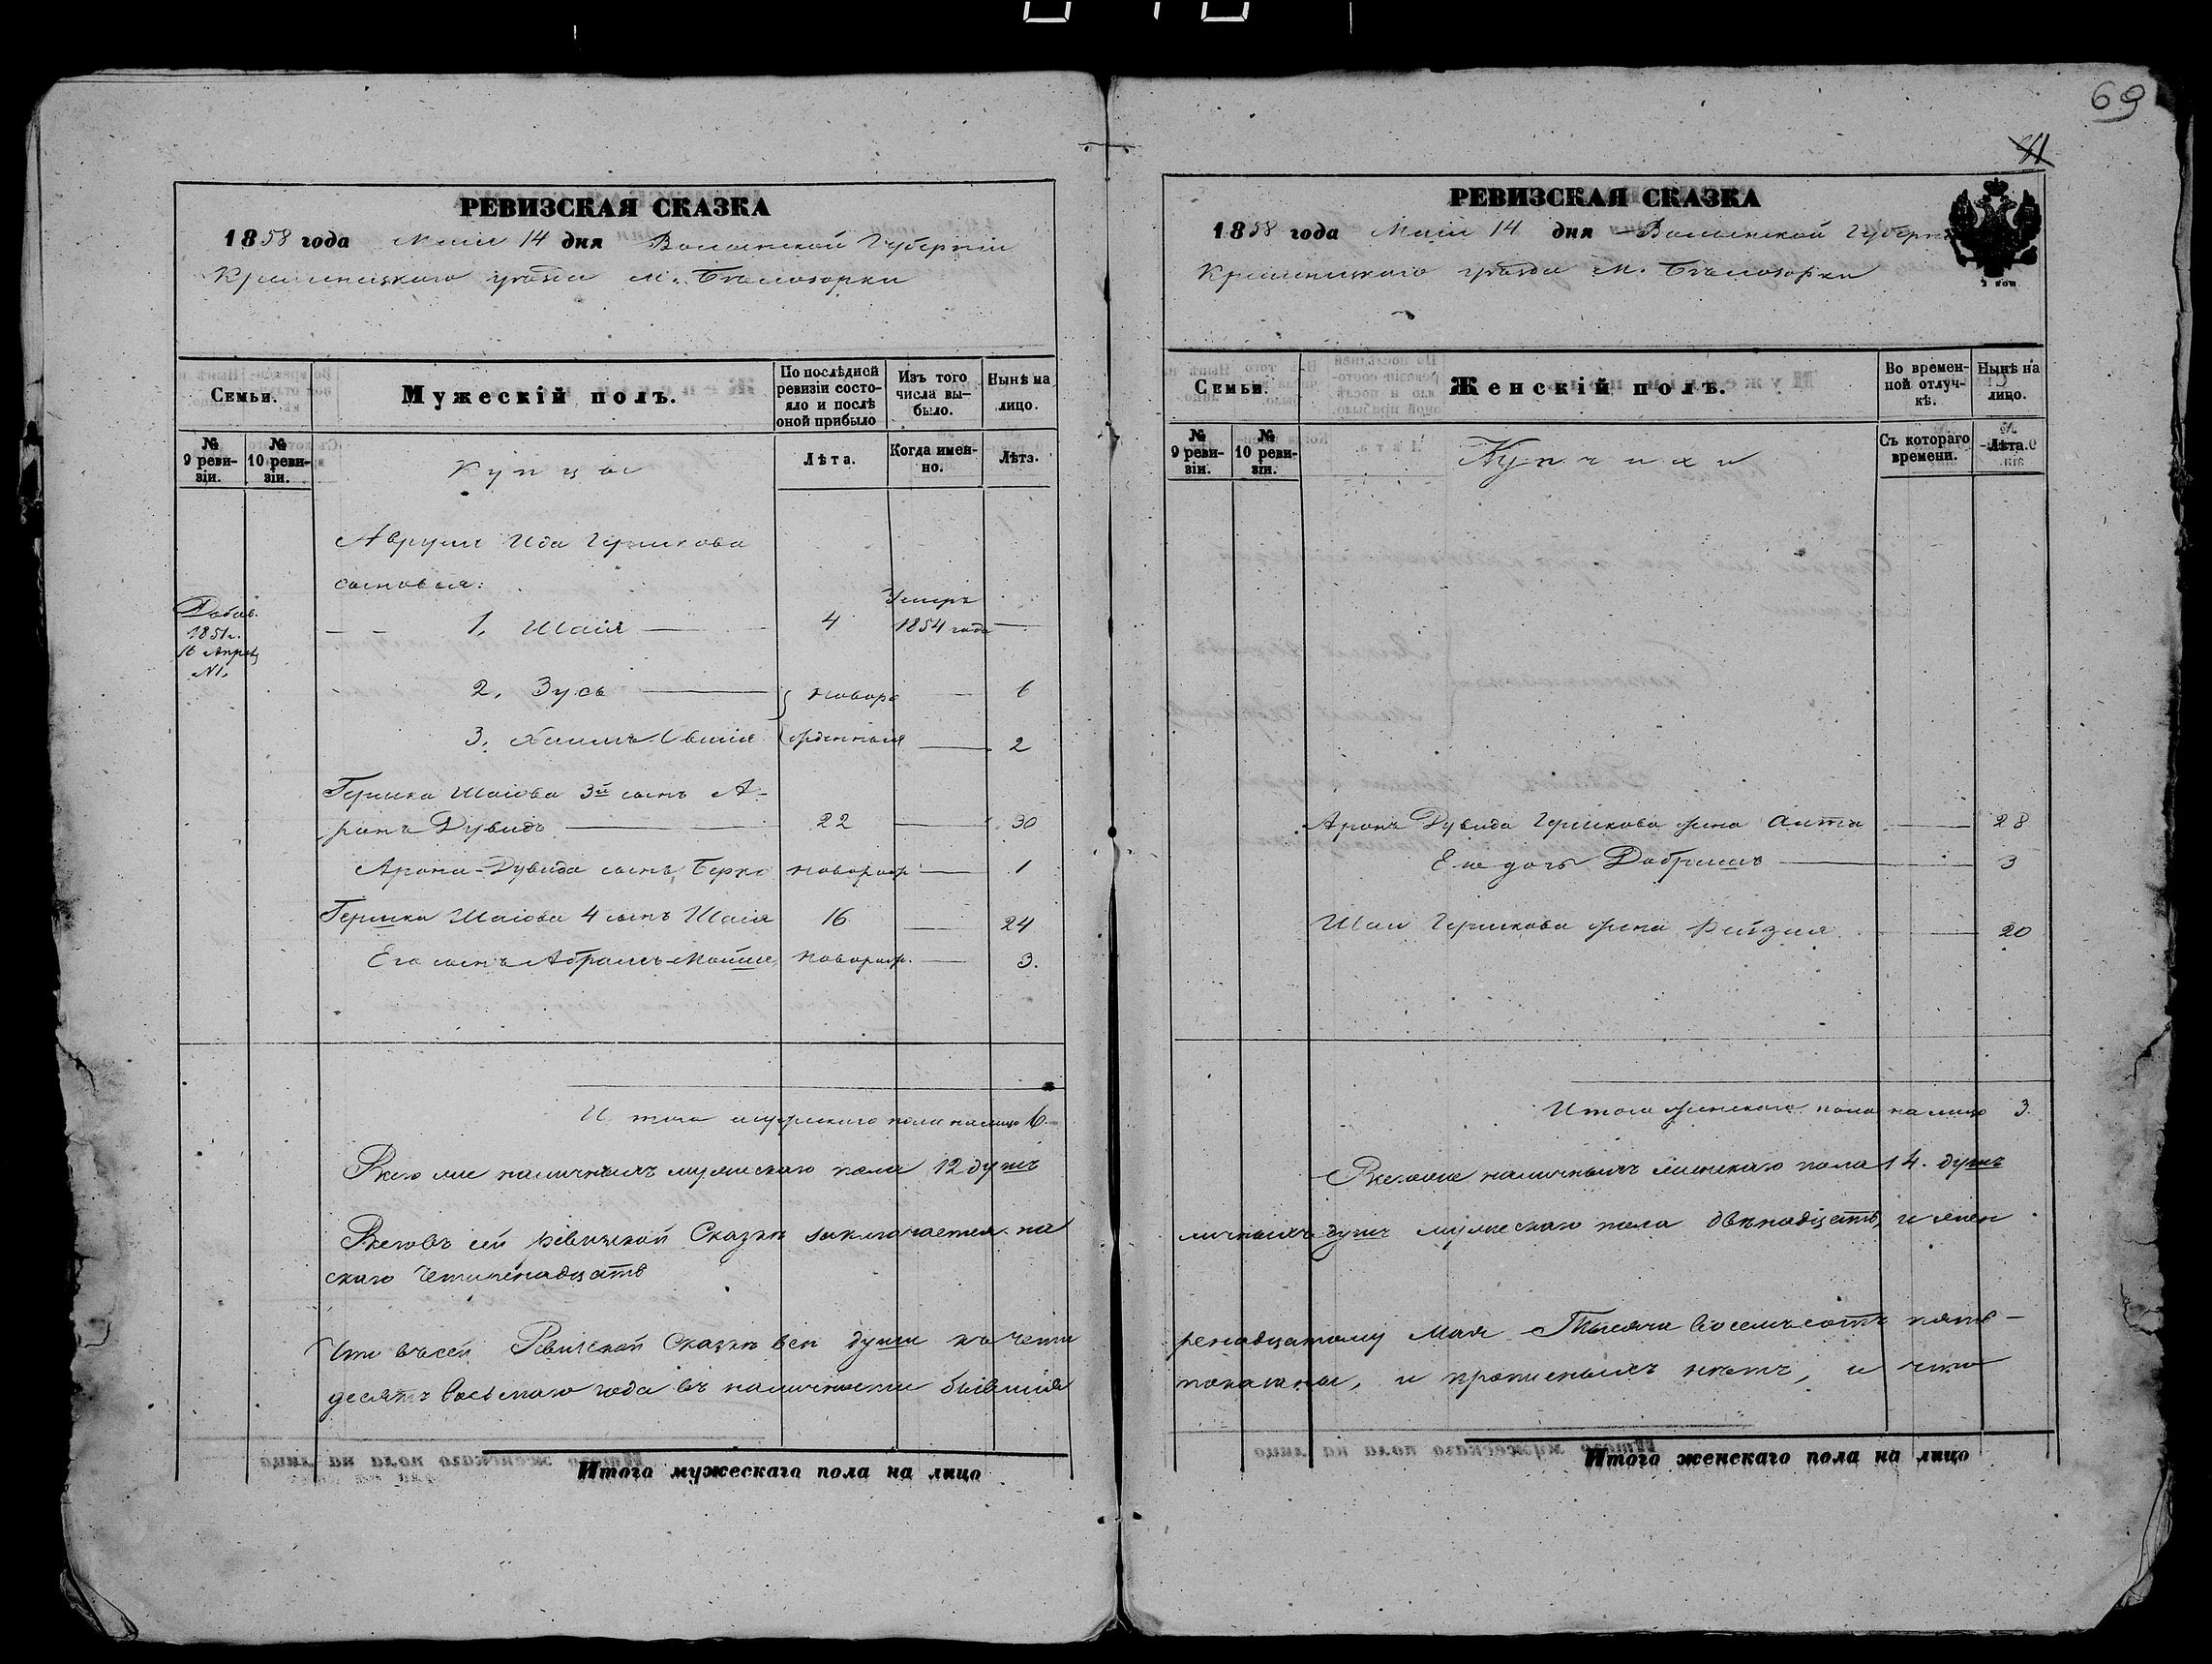 69
РЕВИЗСКАЯ СКАЗКА
1858 года Мая 14 дня Волынской Губерніи
Кременецкаго уѣзда м. Бѣлозорки
Семьи.
Мужескій полъ.
По послѣдней ревизіи состо-
яло и послѣ
оной прибыло
Изъ того
числа вы-
было.
Нынѣ на
лицо.
№
9 реви-
зіи.
№
10 реви-
зіи.
Купцы
Лѣта.
Когда имен-
но.
Лѣта.
Аврум Ида Гершкова
сыновья:
Добав.
1851 г.
16 Апрѣл
№1.
1. Шаія 4 Умеръ
1854 года
2. Зусь новоро 6
3. Хаимъ жденныя 2
Гершка Шаіова 3й сынъ А-
ронъ Дувидъ 22 30
Арона-Дувида сынъ Берко новорож 1
Гершка Шаіова 4 сынъ Шаія 16 24
Его сынъ Абрамъ-Мойше новорож. 3.
Итого мужескаго пола на лицо 6
Всего же наличныхъ мужескаго пола 12 душъ
Всего въ сей Ревизской Сказкѣ заключается на
скаго четырнадцать
Что въ сей Ревизской Сказкѣ всѣ души къ четы
десятъ восьмаго года въ наличности бывшія
Итого мужескаго пола на лицо
РЕВИЗСКАЯ СКАЗКА
1858 года Мая 14 дня Волынской Губерніи
Кременецкаго уѣзда м. Бѣлозорки
Семьи.
Женскій полъ.
Во времен-
ной отлуч-
кѣ.
Нынѣ на
лицо.
№
9 реви-
зіи.
№
10 реви-
зіи.
Купчихи
Съ котораго
времени.
Лѣта.
Аронъ Дувида Гершкова жена Аита 28
Ея дочь Добришъ 3
Шаи Гершкова жена Рейзля 20
Итого женскаго пола на лицо 3.
Всего же наличныхъ женскаго пола 14. душъ
личныхъ душъ мужескаго пола двѣнадцать, и жен
ренадцатому Мая Тысяча восемьсотъ пять-
показаны, и прописныхъ нѣтъ, и что
Итого женскаго пола на лицо